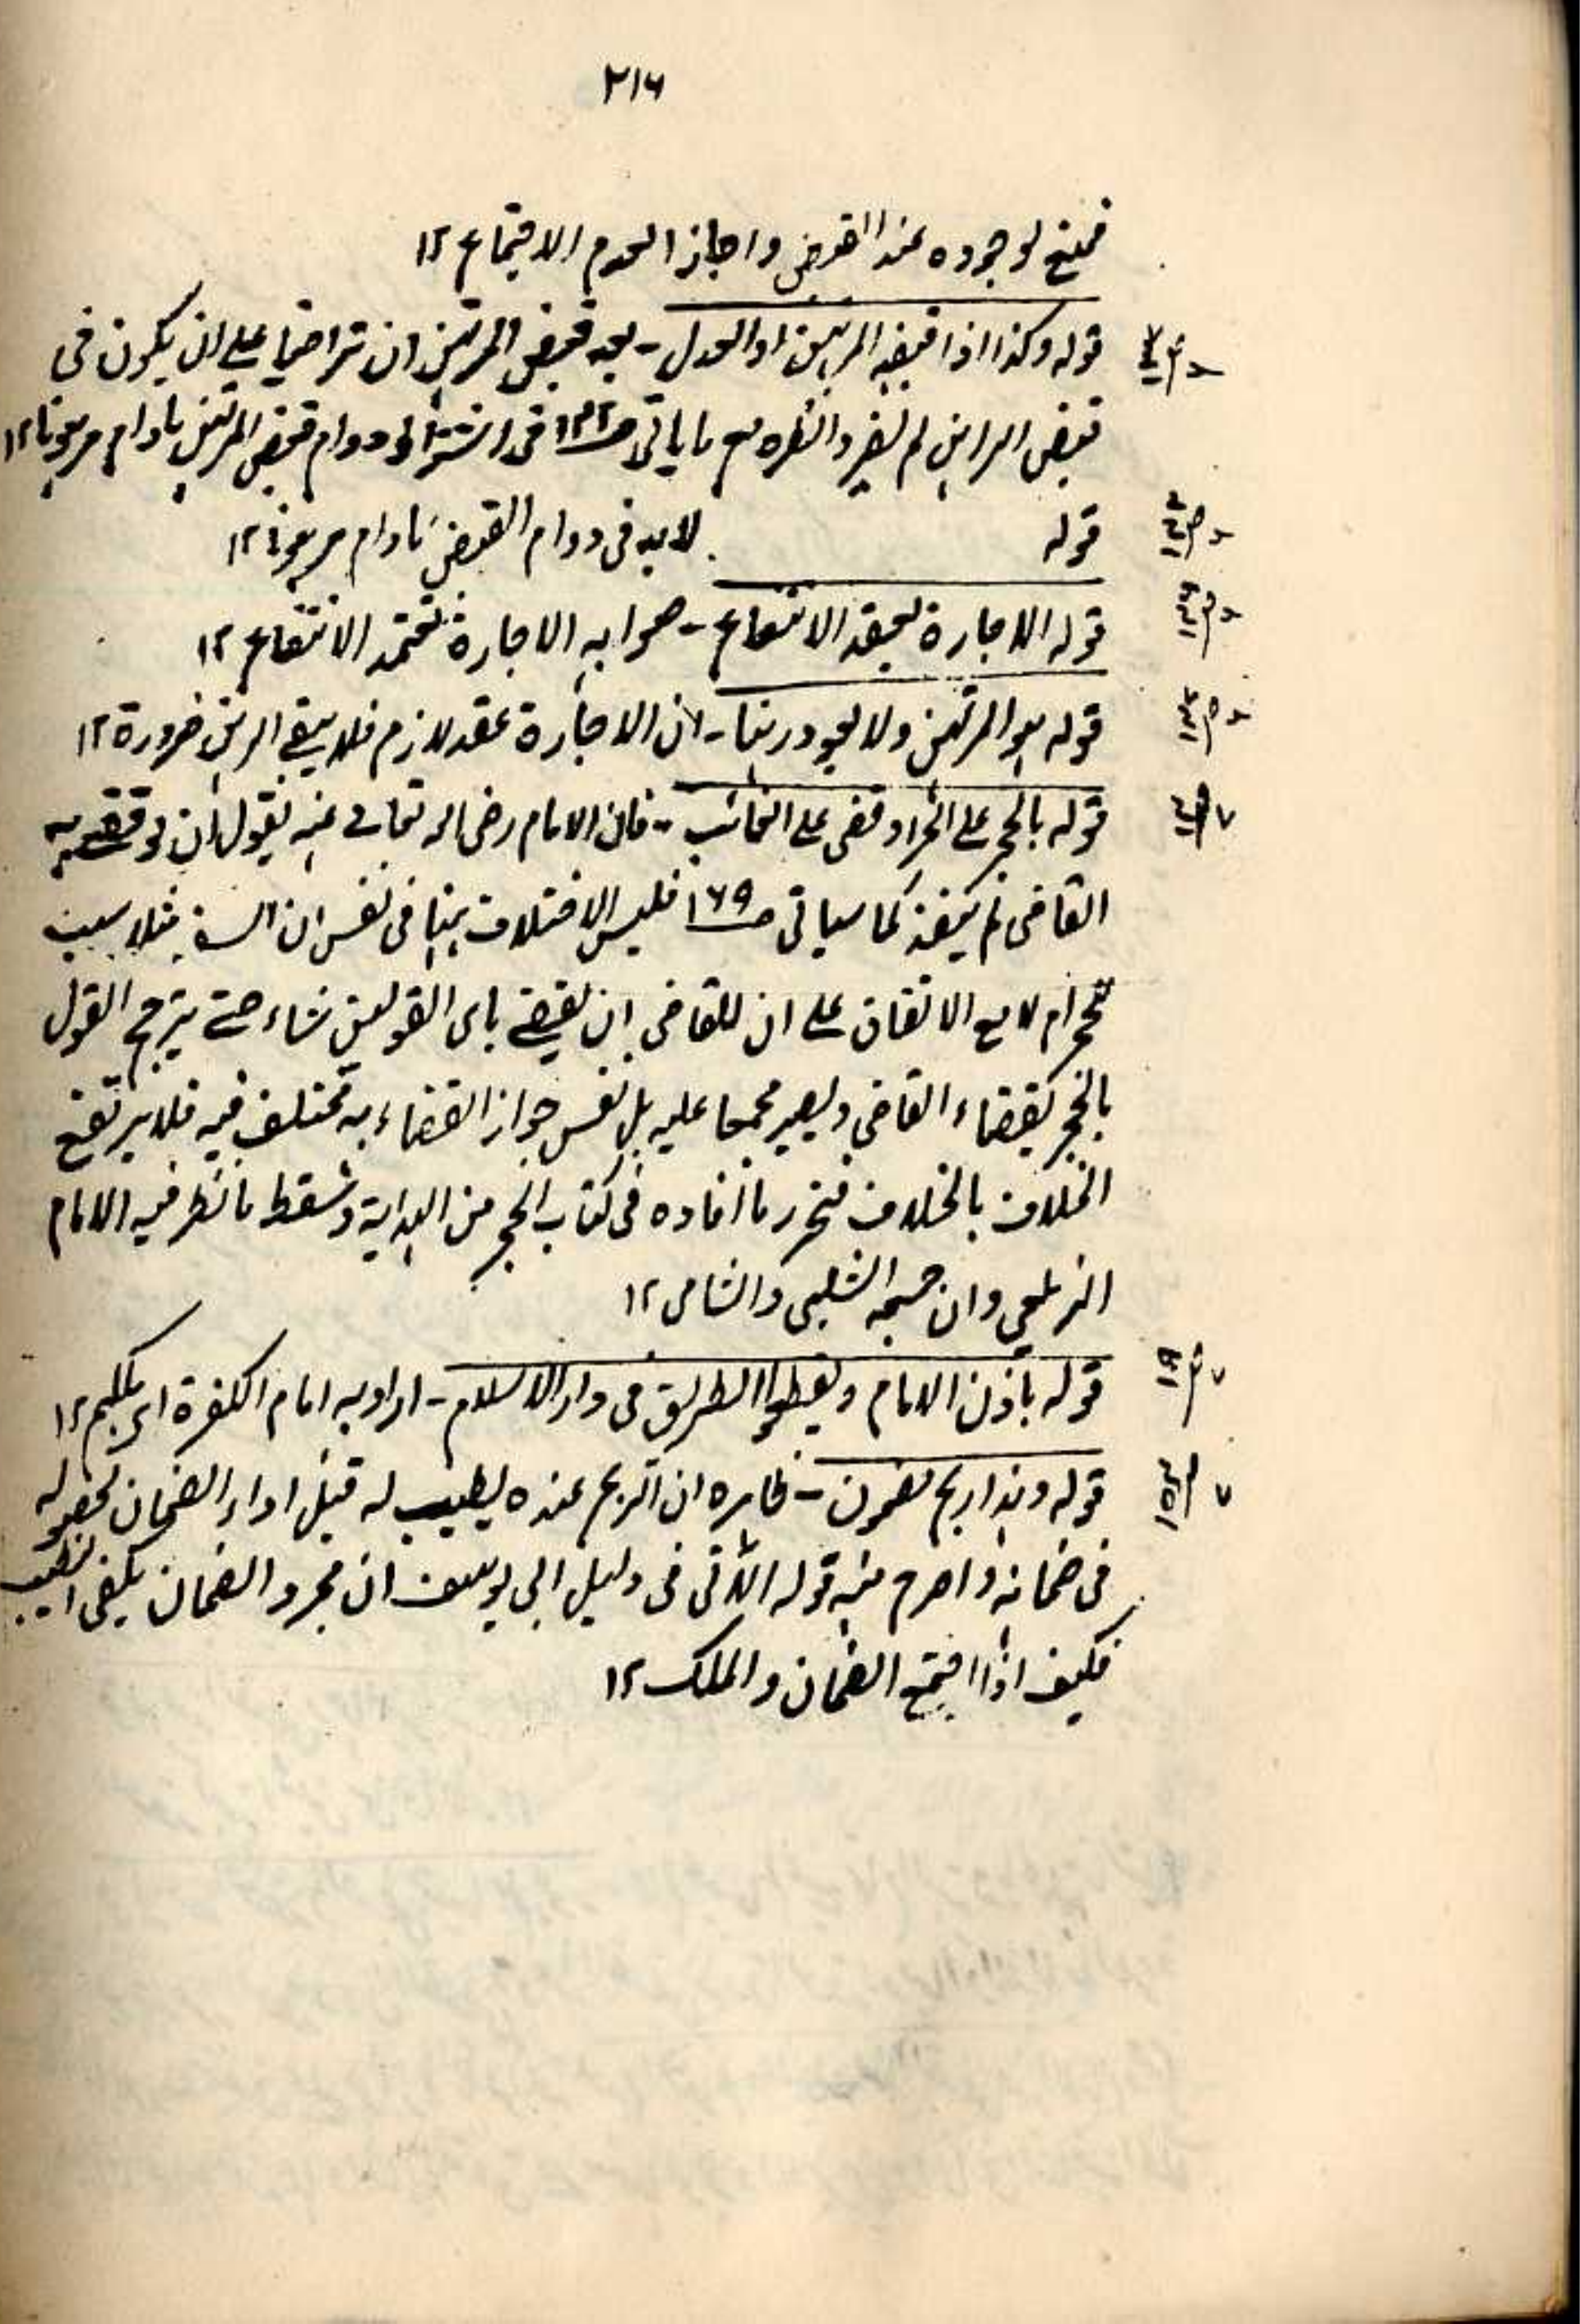 ٢١٦
فمنع لوجوده عند القبض واجازا لعدم الاجتماع ١٢
قوله وكذا اذا قبضه المرتهن او العدل - بعد قبض المرتهن ان تراضيا على ان يكون فى
قبض الراهن لم يضر وانظره مع ما ياتى فى اشتراط دوام قبض المرتهن مادام مرهونا ١٢
قوله لابد فى دوام القبض مادام مرهونا ١٢
قوله الاجارة لعقد الانتفاع - صوابه الاجارة تعتمد الانتفاع ١٢
قوله هو المرتهن ولا يعود رهنا - لان الاجارة عقد لازم فلا يبقى الرهن ضرورة ١٢
قوله بالحجر على الحر او قضى على الغائب - فان الامام رضى الله تعالى عنه يقول ان لو قضى به
القاضى لم ينفذ كما سياتى صـ ١٦٩ فليس الاختلاف ههنا فى نفس ان السفه مثلا سبب
للحجر ام لا مع الاتفاق على ان للقاضى ان يقضى باى القولين شاء حتى يترجح القول
بالحجر بقضاء القاضى ويصير مجمعا عليه بل نفس جواز القضاء به مختلف فيه فلا يرتفع
الخلاف بالخلاف فتحرر ما افاده فى كتاب الحجر من الهداية وسقط ما نظر فيه الامام
الزيلعى وان تبعه الشلبى والشامى ١٢
قوله باذن الامام ويقطعوا الطريق فى دار الاسلام - اراد به امام الكفرة اى ملكهم ١٢
قوله وهذا ربح مضمون - ظاهره ان الربح عنده يطيب له قبل اداء الضمان لحصوله
فى ضمانه واصرح منه قوله الآتى فى دليل ابى يوسف ان مجرد الضمان يكفى لطيب
فكيف اذا اجتمع الضمان والملك ١٢